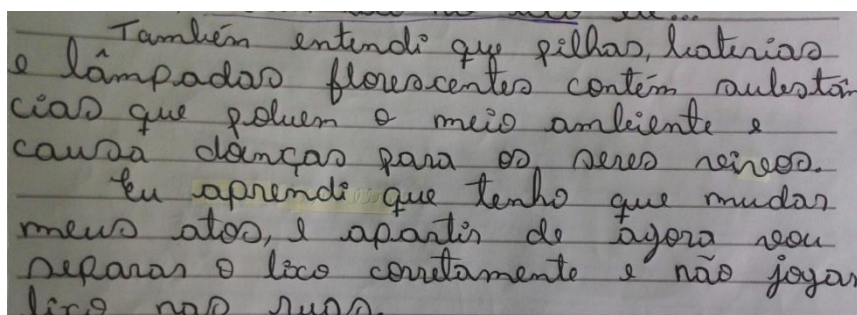 Também entendi que pilhas, baterias
e lâmpadas florescentes contém substân
cias que poluem o meio ambiente e
causa doenças para os seres vivos.
Eu aprendi que tenho que mudar
meus atos, e apartir de agora vou
separar o lixo corretamente e não jogar
lixo nas ruas.